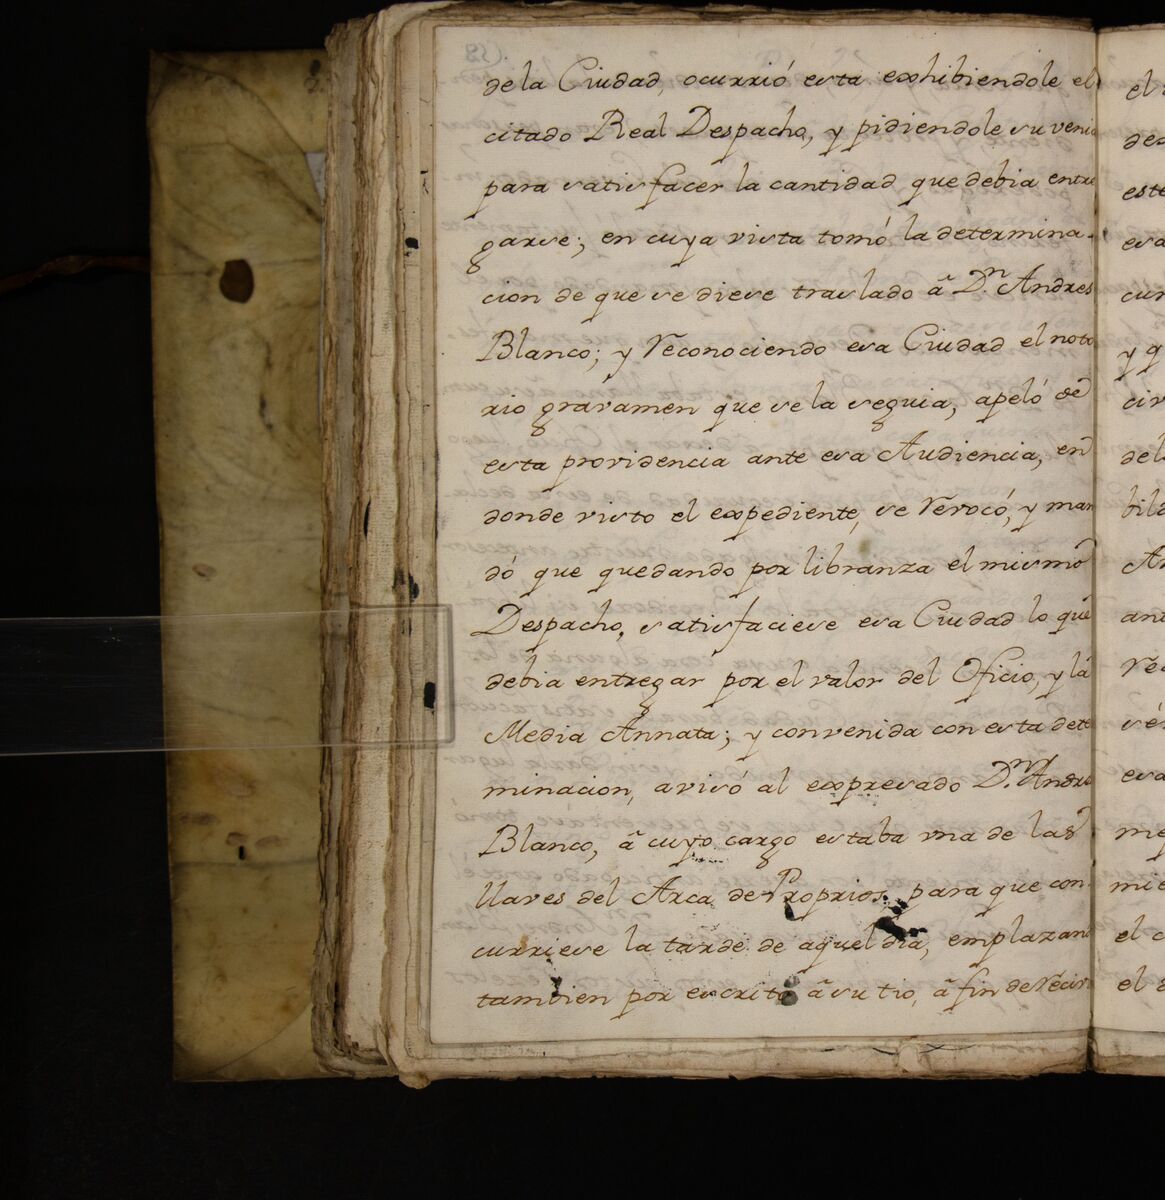 dela Ciudad, ocurrió esta exhibiendole el
citado Real Despacho, y pidiendole su venia
para satisfacer la cantidad que debia entre
garse; en cuya vista tomó la determina-
cion de que se diese traslado â Dn. Andres
Blanco; y reconociendo esa Ciudad el noto
rio gravamen que se la seguia, apeló de
esta providencia ante esa Audiencia, en
donde visto el expediente, se revocó, y man
dó que quedando por libranza el mismo
Despacho, satisfaciese esa Ciudad lo que
debia entregar por el valor del Oficio, y la
Media Annata; y convenida con esta dete
minacion, avisó al expresado Dn. Andre
Blanco, â cuyo cargo estaba una de las
llaves del Arca de Proprios, para que con
curriese la tarde de aquel dia, emplazan
tambien por escrito â su tio, â fin de recir
el
des
este
esa
cur
y q
cir
del
bil
An
ant
rec
sé
esa
me
mie
el c
el